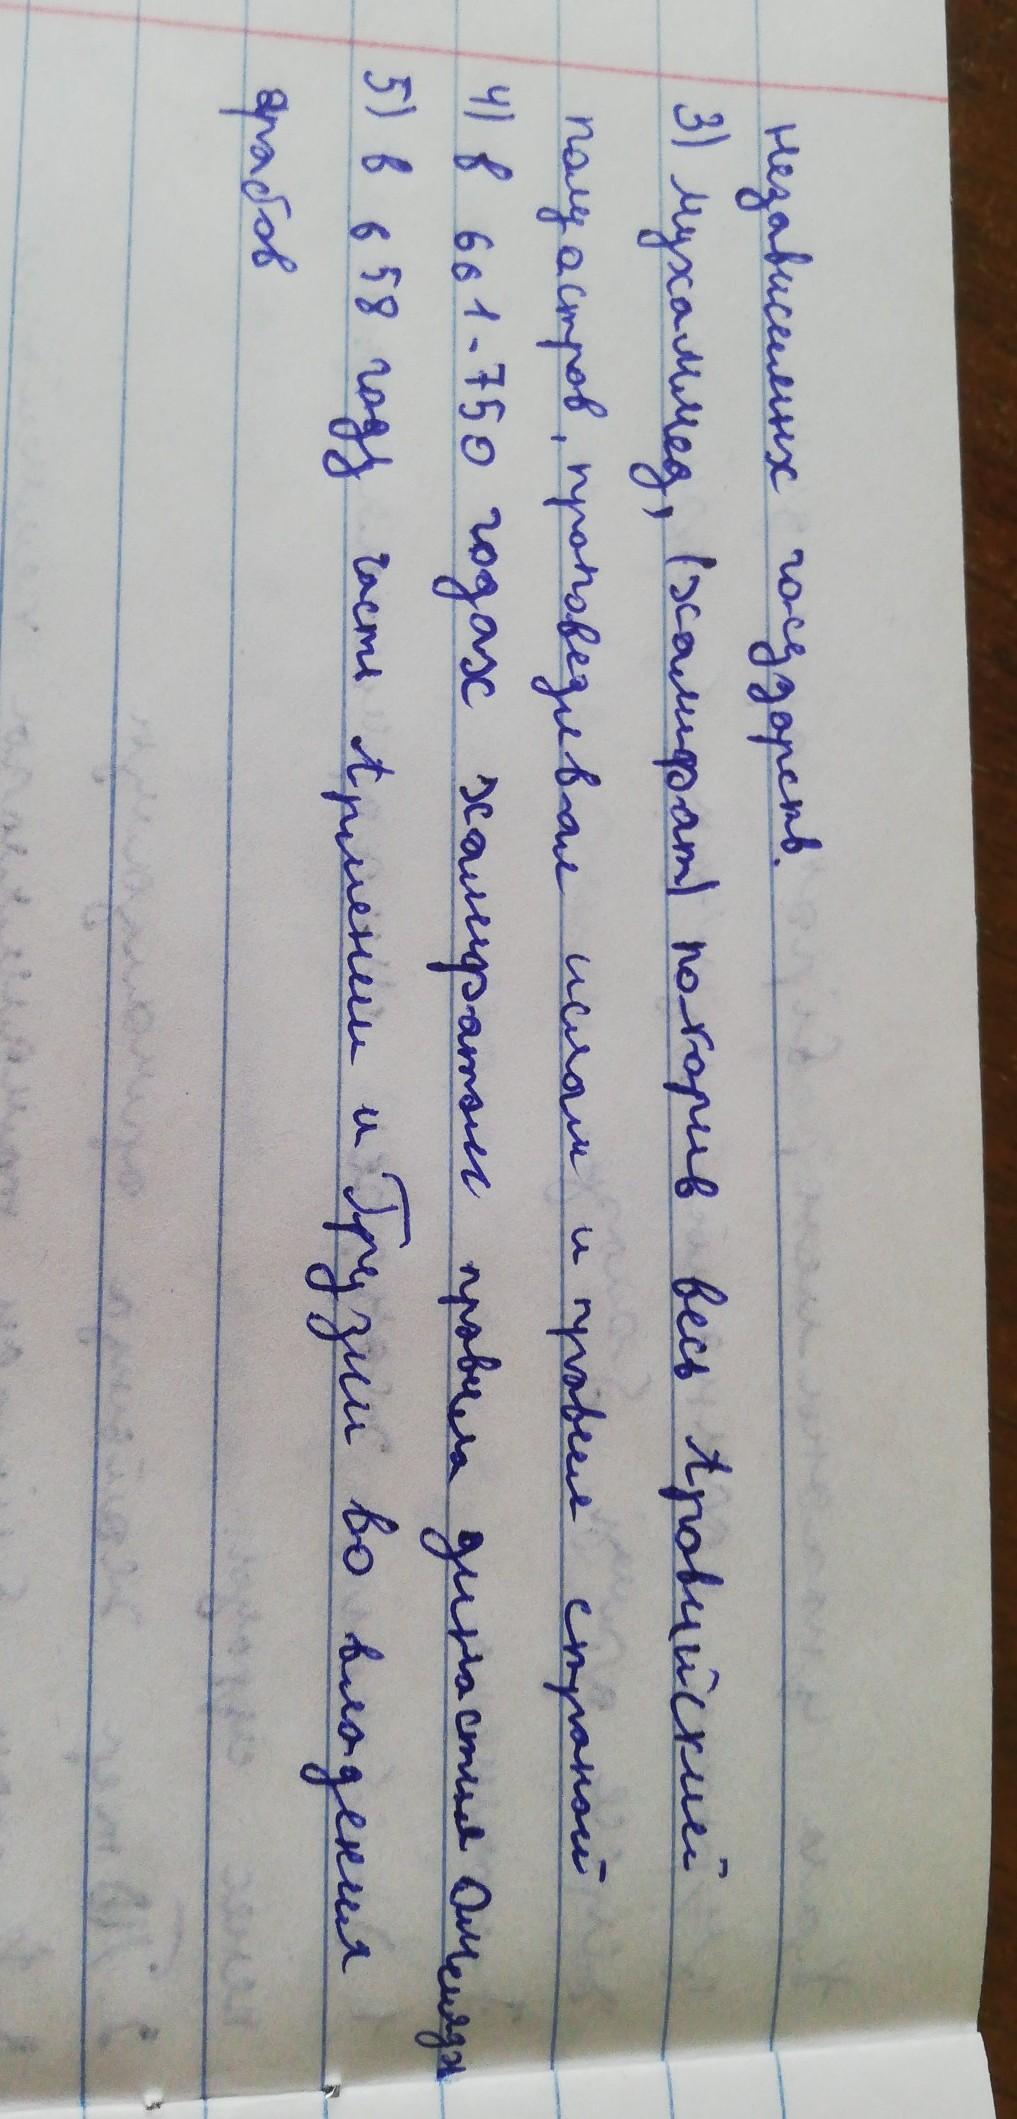 независимых государств.
3) Мухаммед, (халифат) покорив весь Аравийский
полуостров, проповедивал ислам и правил страной
4) в 661-750 годах халифатом правила династия Омеядх
5) в 658 году часть Армении и Грузии во владения
арабов